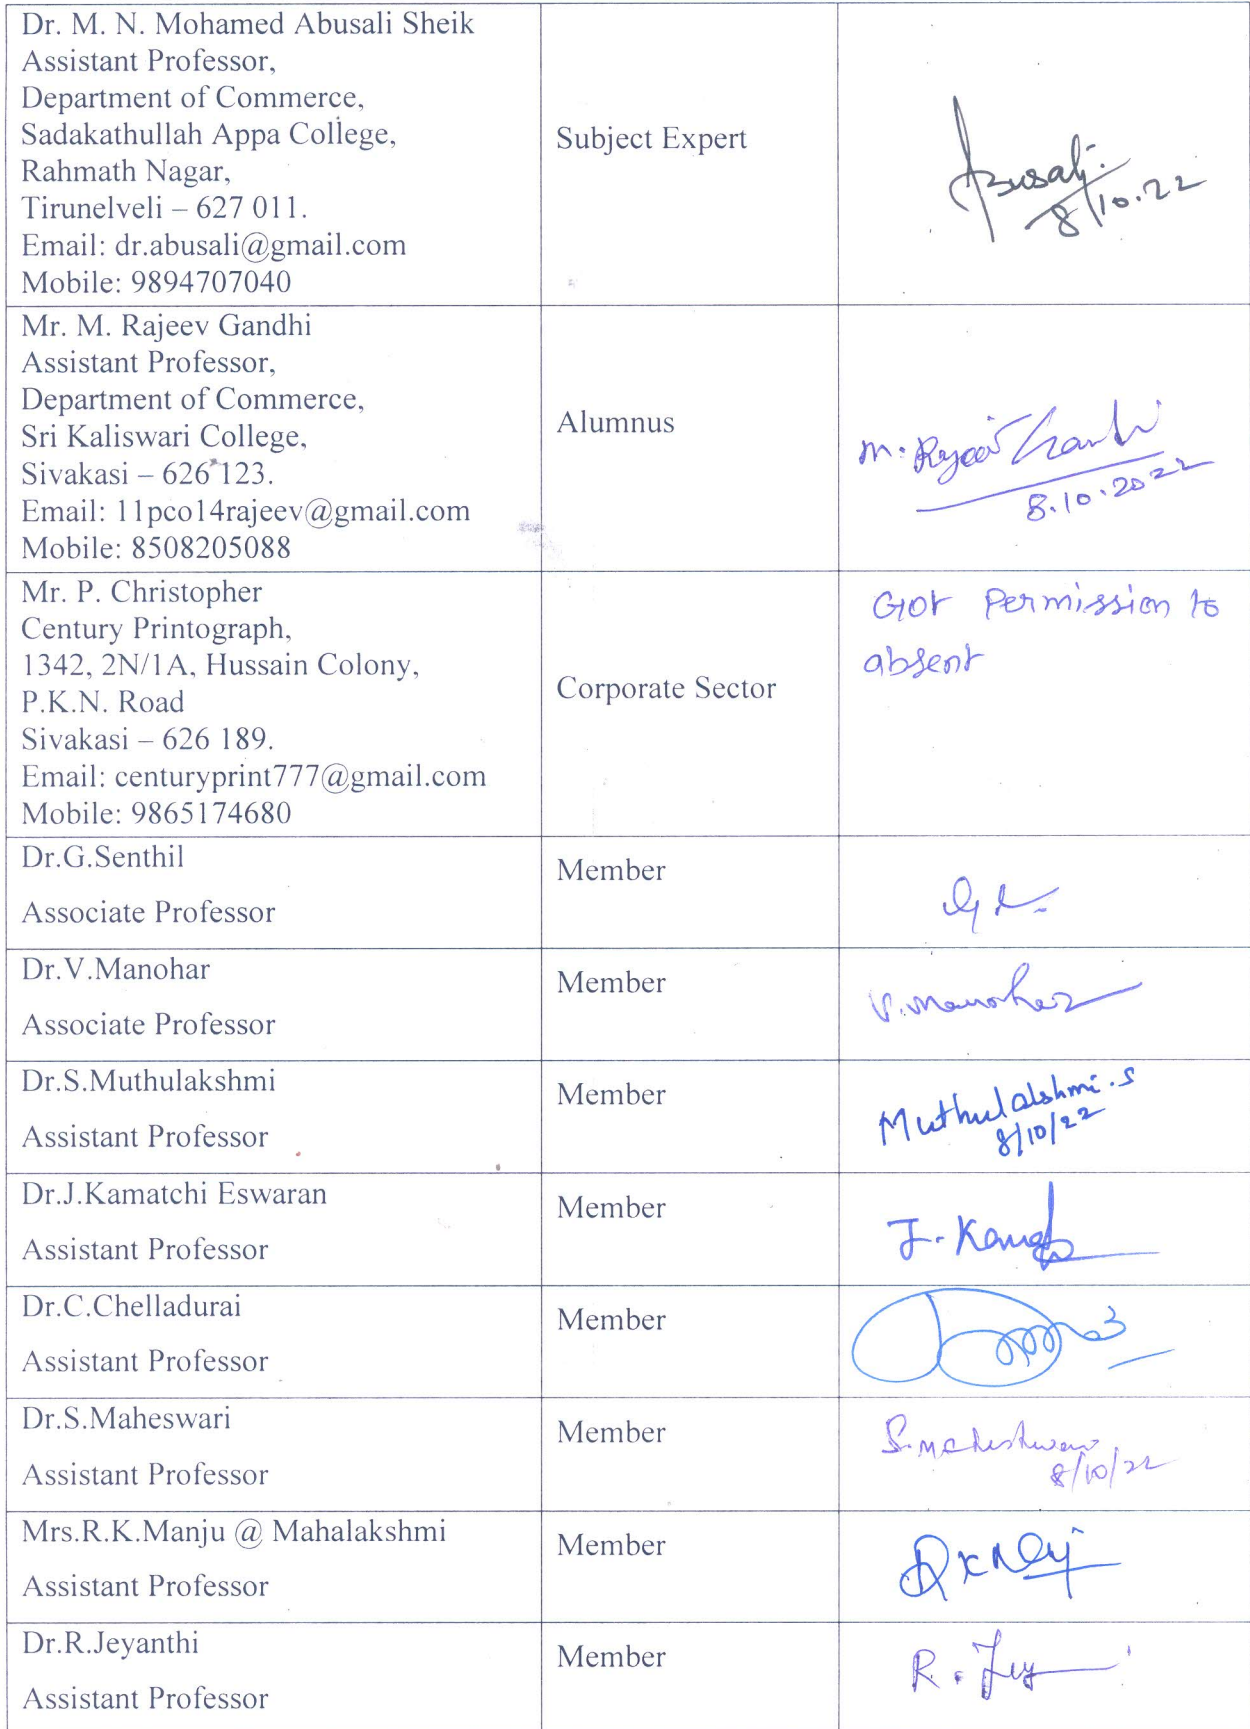 Dr. M. N. Mohamed Abusali Sheik
Assistant Professor,
Department of Commerce,
Sadakathullah Appa College,
Rahmath Nagar,
Tirunelveli – 627 011.
Email: dr.abusali@gmail.com
Mobile: 9894707040
Subject Expert
Abusali.
8/10.22
Mr. M. Rajeev Gandhi
Assistant Professor,
Department of Commerce,
Sri Kaliswari College,
Sivakasi – 626 123.
Email: 11pco14rajeev@gmail.com
Mobile: 8508205088
Alumnus
M. Rajeev Gandhi
8.10.2022
Mr. P. Christopher
Century Printograph,
1342, 2N/1A, Hussain Colony,
P.K.N. Road
Sivakasi – 626 189.
Email: centuryprint777@gmail.com
Mobile: 9865174680
Corporate Sector
Got Permission to
absent
Dr.G.Senthil
Associate Professor
Member
Dr.V.Manohar
Associate Professor
Member
V.Manohar
Dr.S.Muthulakshmi
Assistant Professor
Member
Muthulakshmi.S
8/10/22
Dr.J.Kamatchi Eswaran
Assistant Professor
Member
Dr.C.Chelladurai
Assistant Professor
Member
Dr.S.Maheswari
Assistant Professor
Member
8/10/22
Mrs.R.K.Manju @ Mahalakshmi
Assistant Professor
Member
Dr.R.Jeyanthi
Assistant Professor
Member